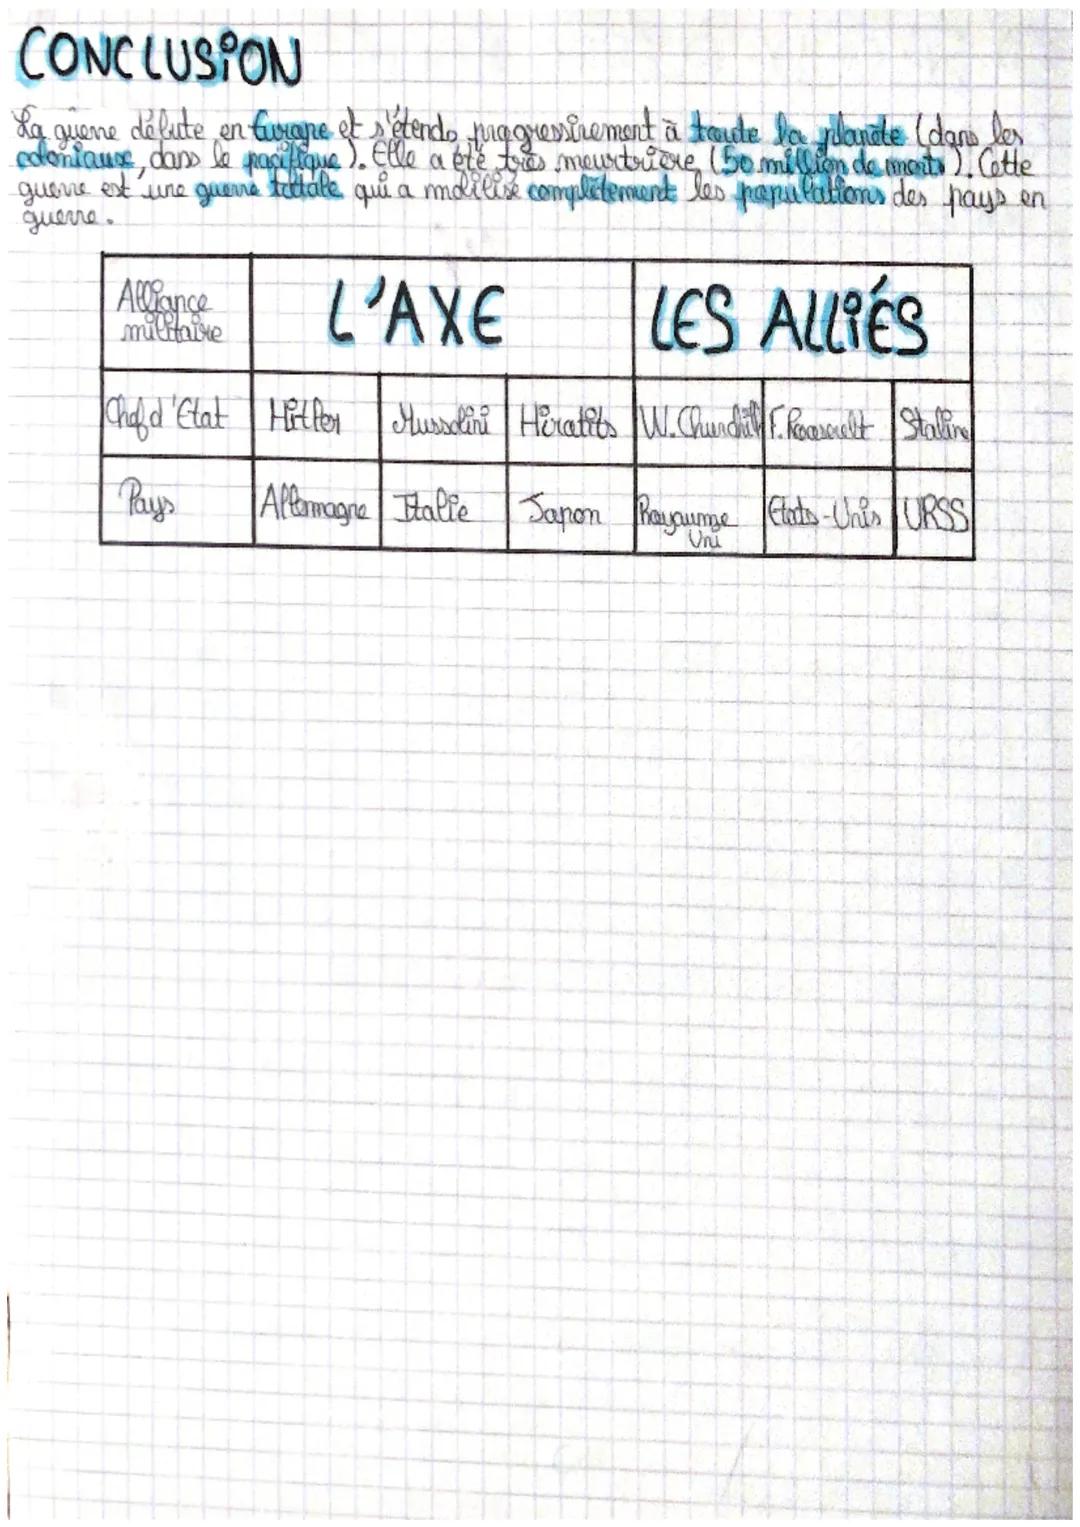 CONCLUSION
La guerre débute en Europe et s'étends progressivement à toute la planète (dans les
coloniaux, dans le pacifique). Elle a été très meurtrière (50 million de morts). Cette
guerre est une guerre tottale qui a mobilisé complètement les populations des pays en
guerre.
Alliance militaire L'AXE LES ALLIÉS
Chef d'Etat Hitler Mussolini Hiratits W. Churchill F. Roosevelt Staline
Pays Allemagne Italie Japon Royaume Uni Etats-Unis URSS